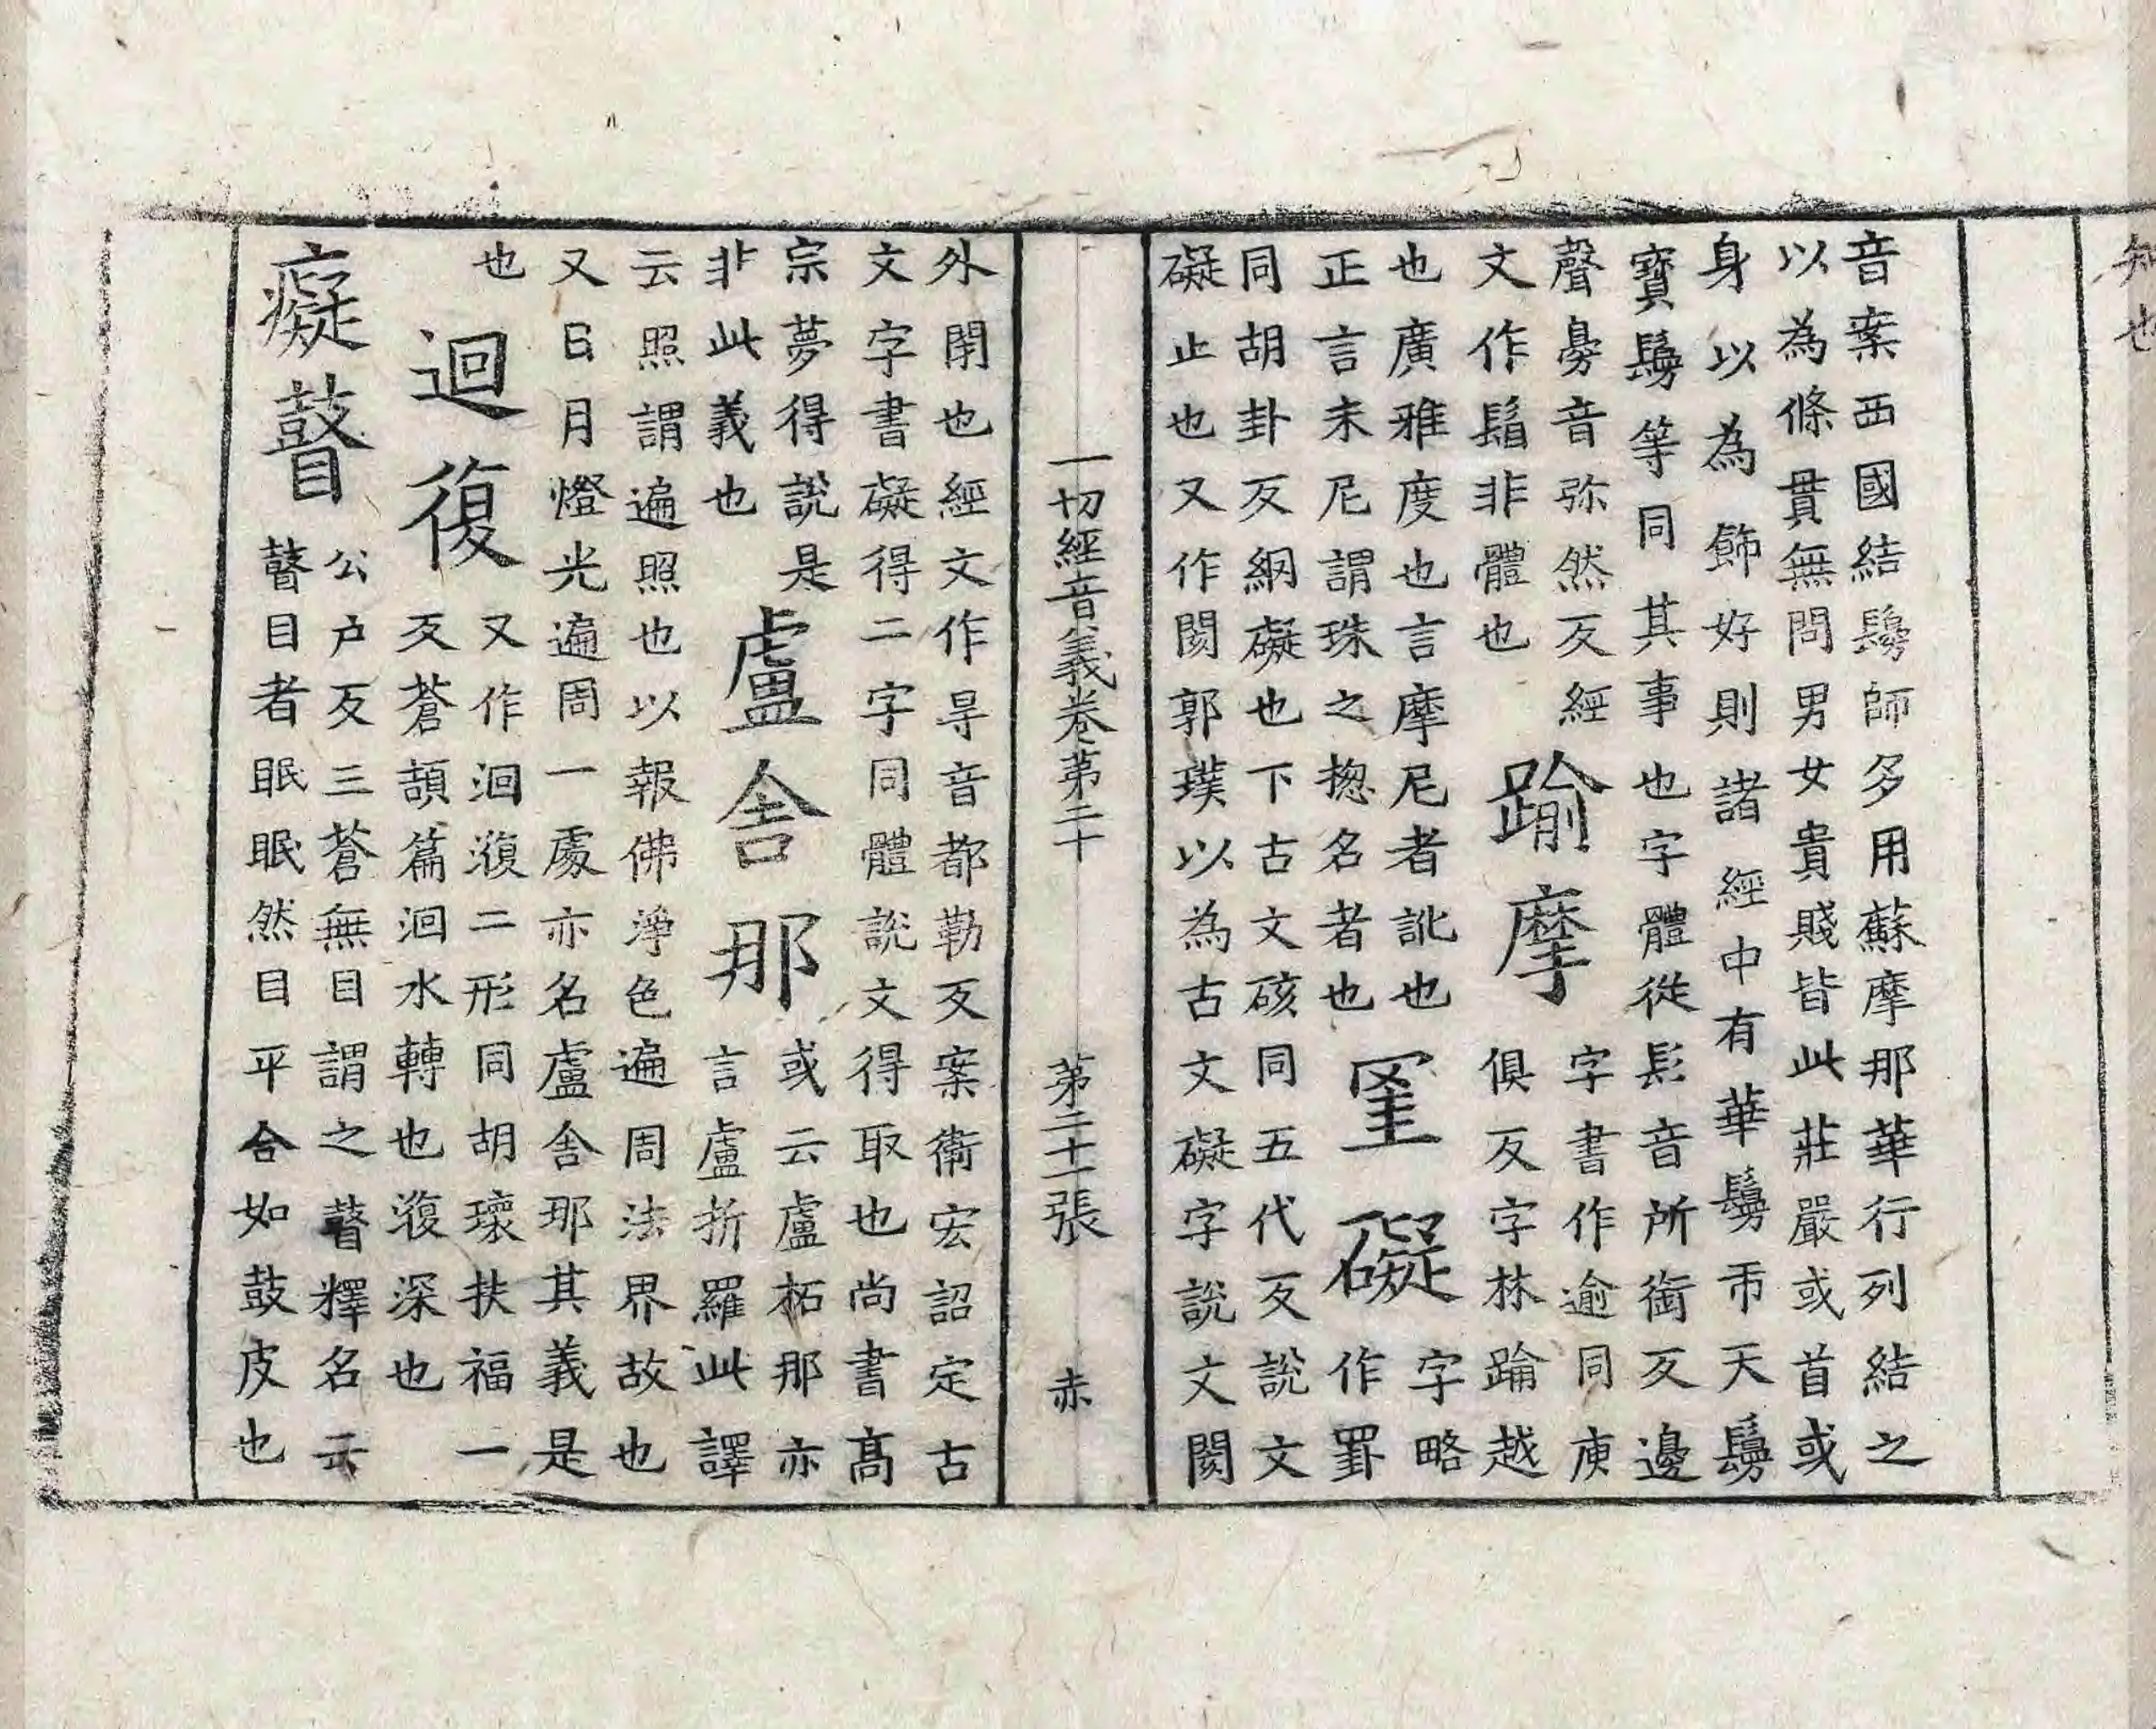 知也
音案西國結鬘師多用蘇摩那華行列結之
以為條貫無問男女貴賤皆此莊嚴或首或
身以為飾好則諸經中有華鬘市天鬘
寶鬘等同其事也字體從髟音所銜反邊
聲臱音弥然反經
文作非體也
踰摩
字書作逾同庾
俱反字林踰越
也廣雅度也言摩尼者訛也
正言末尼謂珠之揔名者也
罣礙
字略
作罫
同胡卦反網礙也下古文硋同五代反說文
礙止也又作閡郭璞以為古文礙字說文閡
一切經音義卷第二十 第二十一張 赤
外閉也經文作㝵音都勒反案衛宏詔定古
文字書礙得二字同體說文得取也尚書高
宗夢得說是
非此義也
盧舍那
或云盧柘那亦
言盧折羅此譯
云照謂遍照也以報佛淨色遍周法界故也
又日月燈光遍周一處亦名盧舍那其義是
也
迴復
又作洄澓二形同胡瓌扶福一
反蒼頡篇洄水轉也澓深也
癡瞽
公户反三蒼無目謂之瞽釋名云
瞽目者眠眠然目平合如鼓皮也